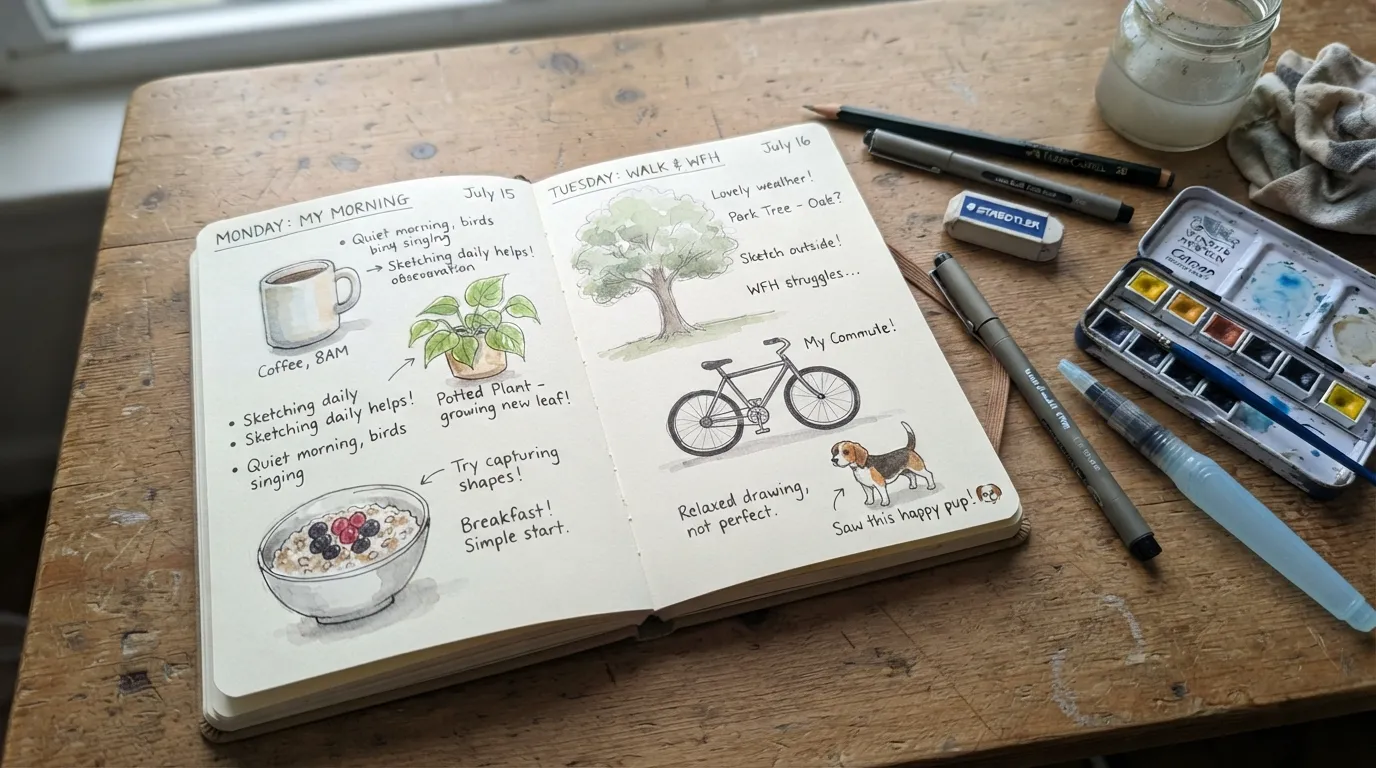 MONDAY: MY MORNING
July 15
• Quiet morning, birds
biny singing
→ Sketching daily helps!
observation
Coffee, 8AM
Potted Plant –
growing new leaf!
• Sketching daily
• Sketching daily helps!
• Quiet morning, birds
singing
Try capturing
shapes!
Breakfast!
Simple start.
TUESDAY: WALK & WFH
July 16
Lovely weather!
Park Tree – Oak?
Sketch outside!
WFH struggles...
My Commute!
Relaxed drawing,
not perfect.
Saw this happy pup!
STAEDTLER